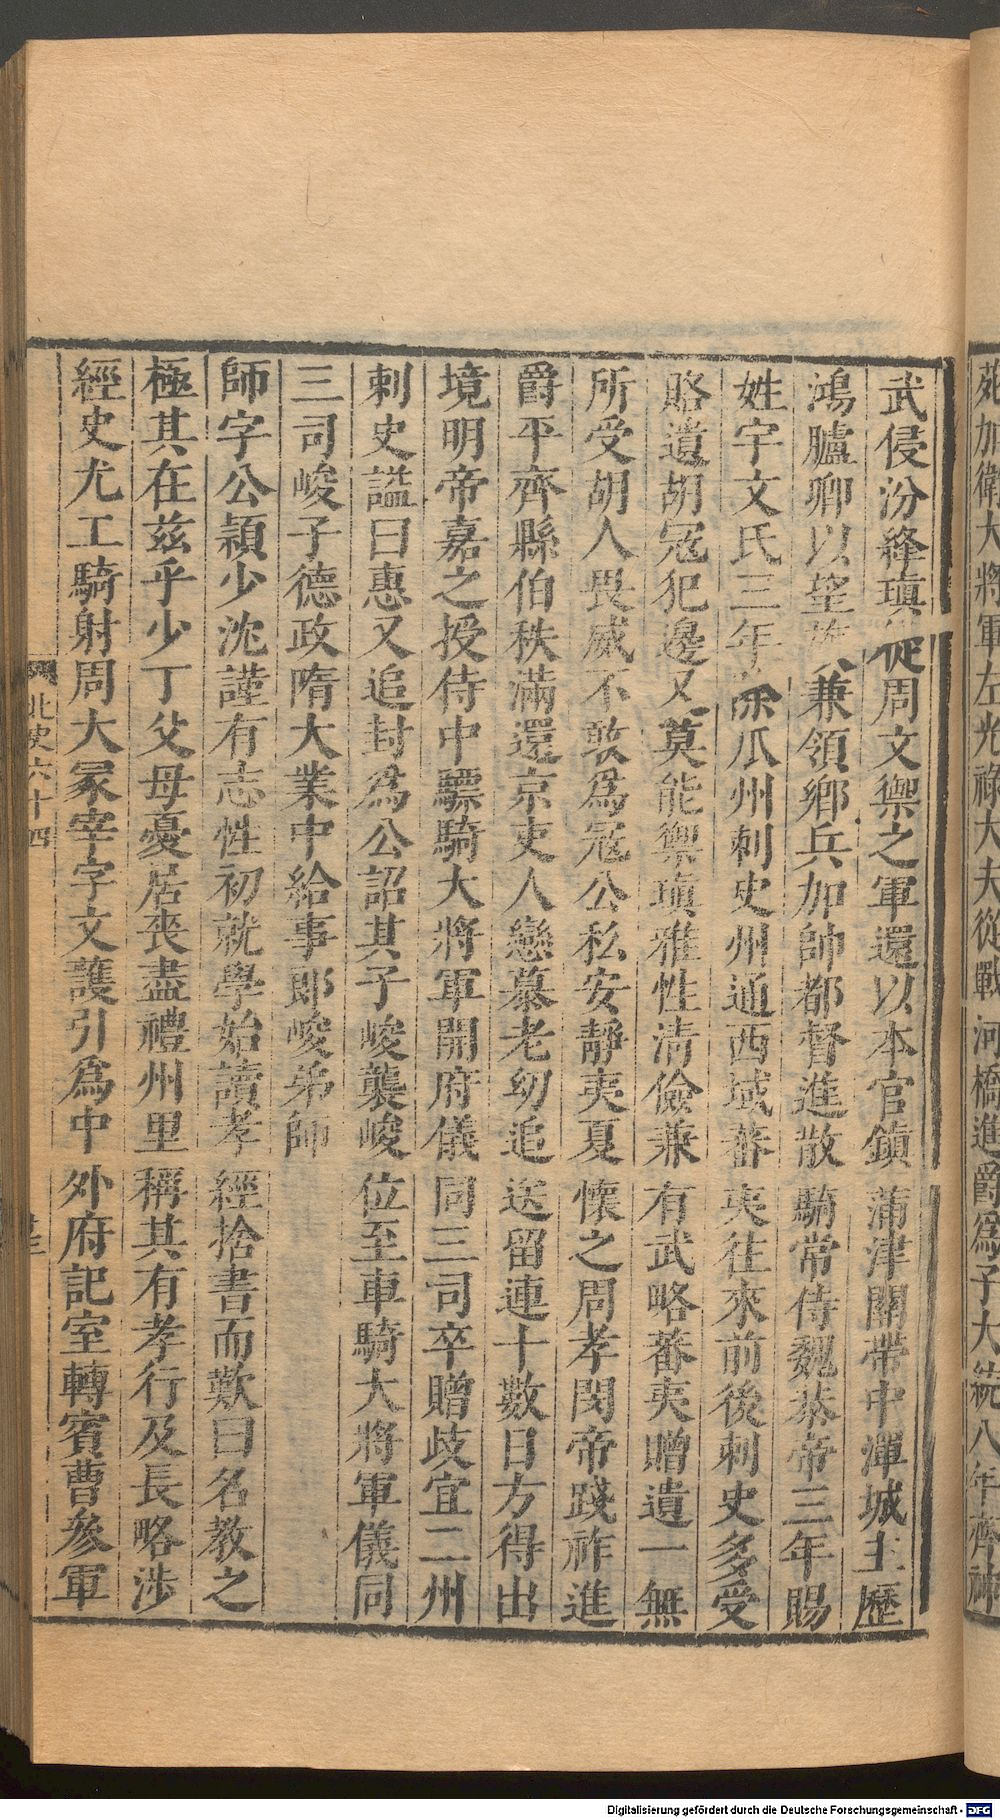 苑加衛大將軍左光祿大夫從戰河橋進爵爲子大統八年齊神
武侵汾絳瑱從周文禦之軍還以本官鎮蒲津關帶中潬城主歷
鴻臚卿以望族兼領鄉兵加帥都督進散騎常侍魏恭帝三年賜
姓宇文氏三年除瓜州刺史州通西域蕃夷往來前後刺史多受
賂遺胡寇犯邊又莫能禦瑱雅性清儉兼有武略蕃夷贈遺一無
所受胡人畏威不敢爲寇公私安靜夷夏懷之周孝閔帝踐祚進
爵平齊縣伯秩滿還京吏人戀慕老幼追送留連十數日方得出
境明帝嘉之授侍中驃騎大將軍開府儀同三司卒贈歧宜二州
刺史謚曰惠又追封爲公詔其子峻襲峻位至車騎大將軍儀同
三司峻子德政隋大業中給事郎峻弟師
師字公穎少沈謹有志性初就學始讀孝經捨書而歎曰名教之
極其在兹乎少丁父母憂居喪盡禮州里稱其有孝行及長略涉
經史尤工騎射周大冢宰宇文護引爲中外府記室轉賓曹參軍
北史六十四
Digitalisierung gefördert durch die Deutsche Forschungsgemeinschaft - DFG